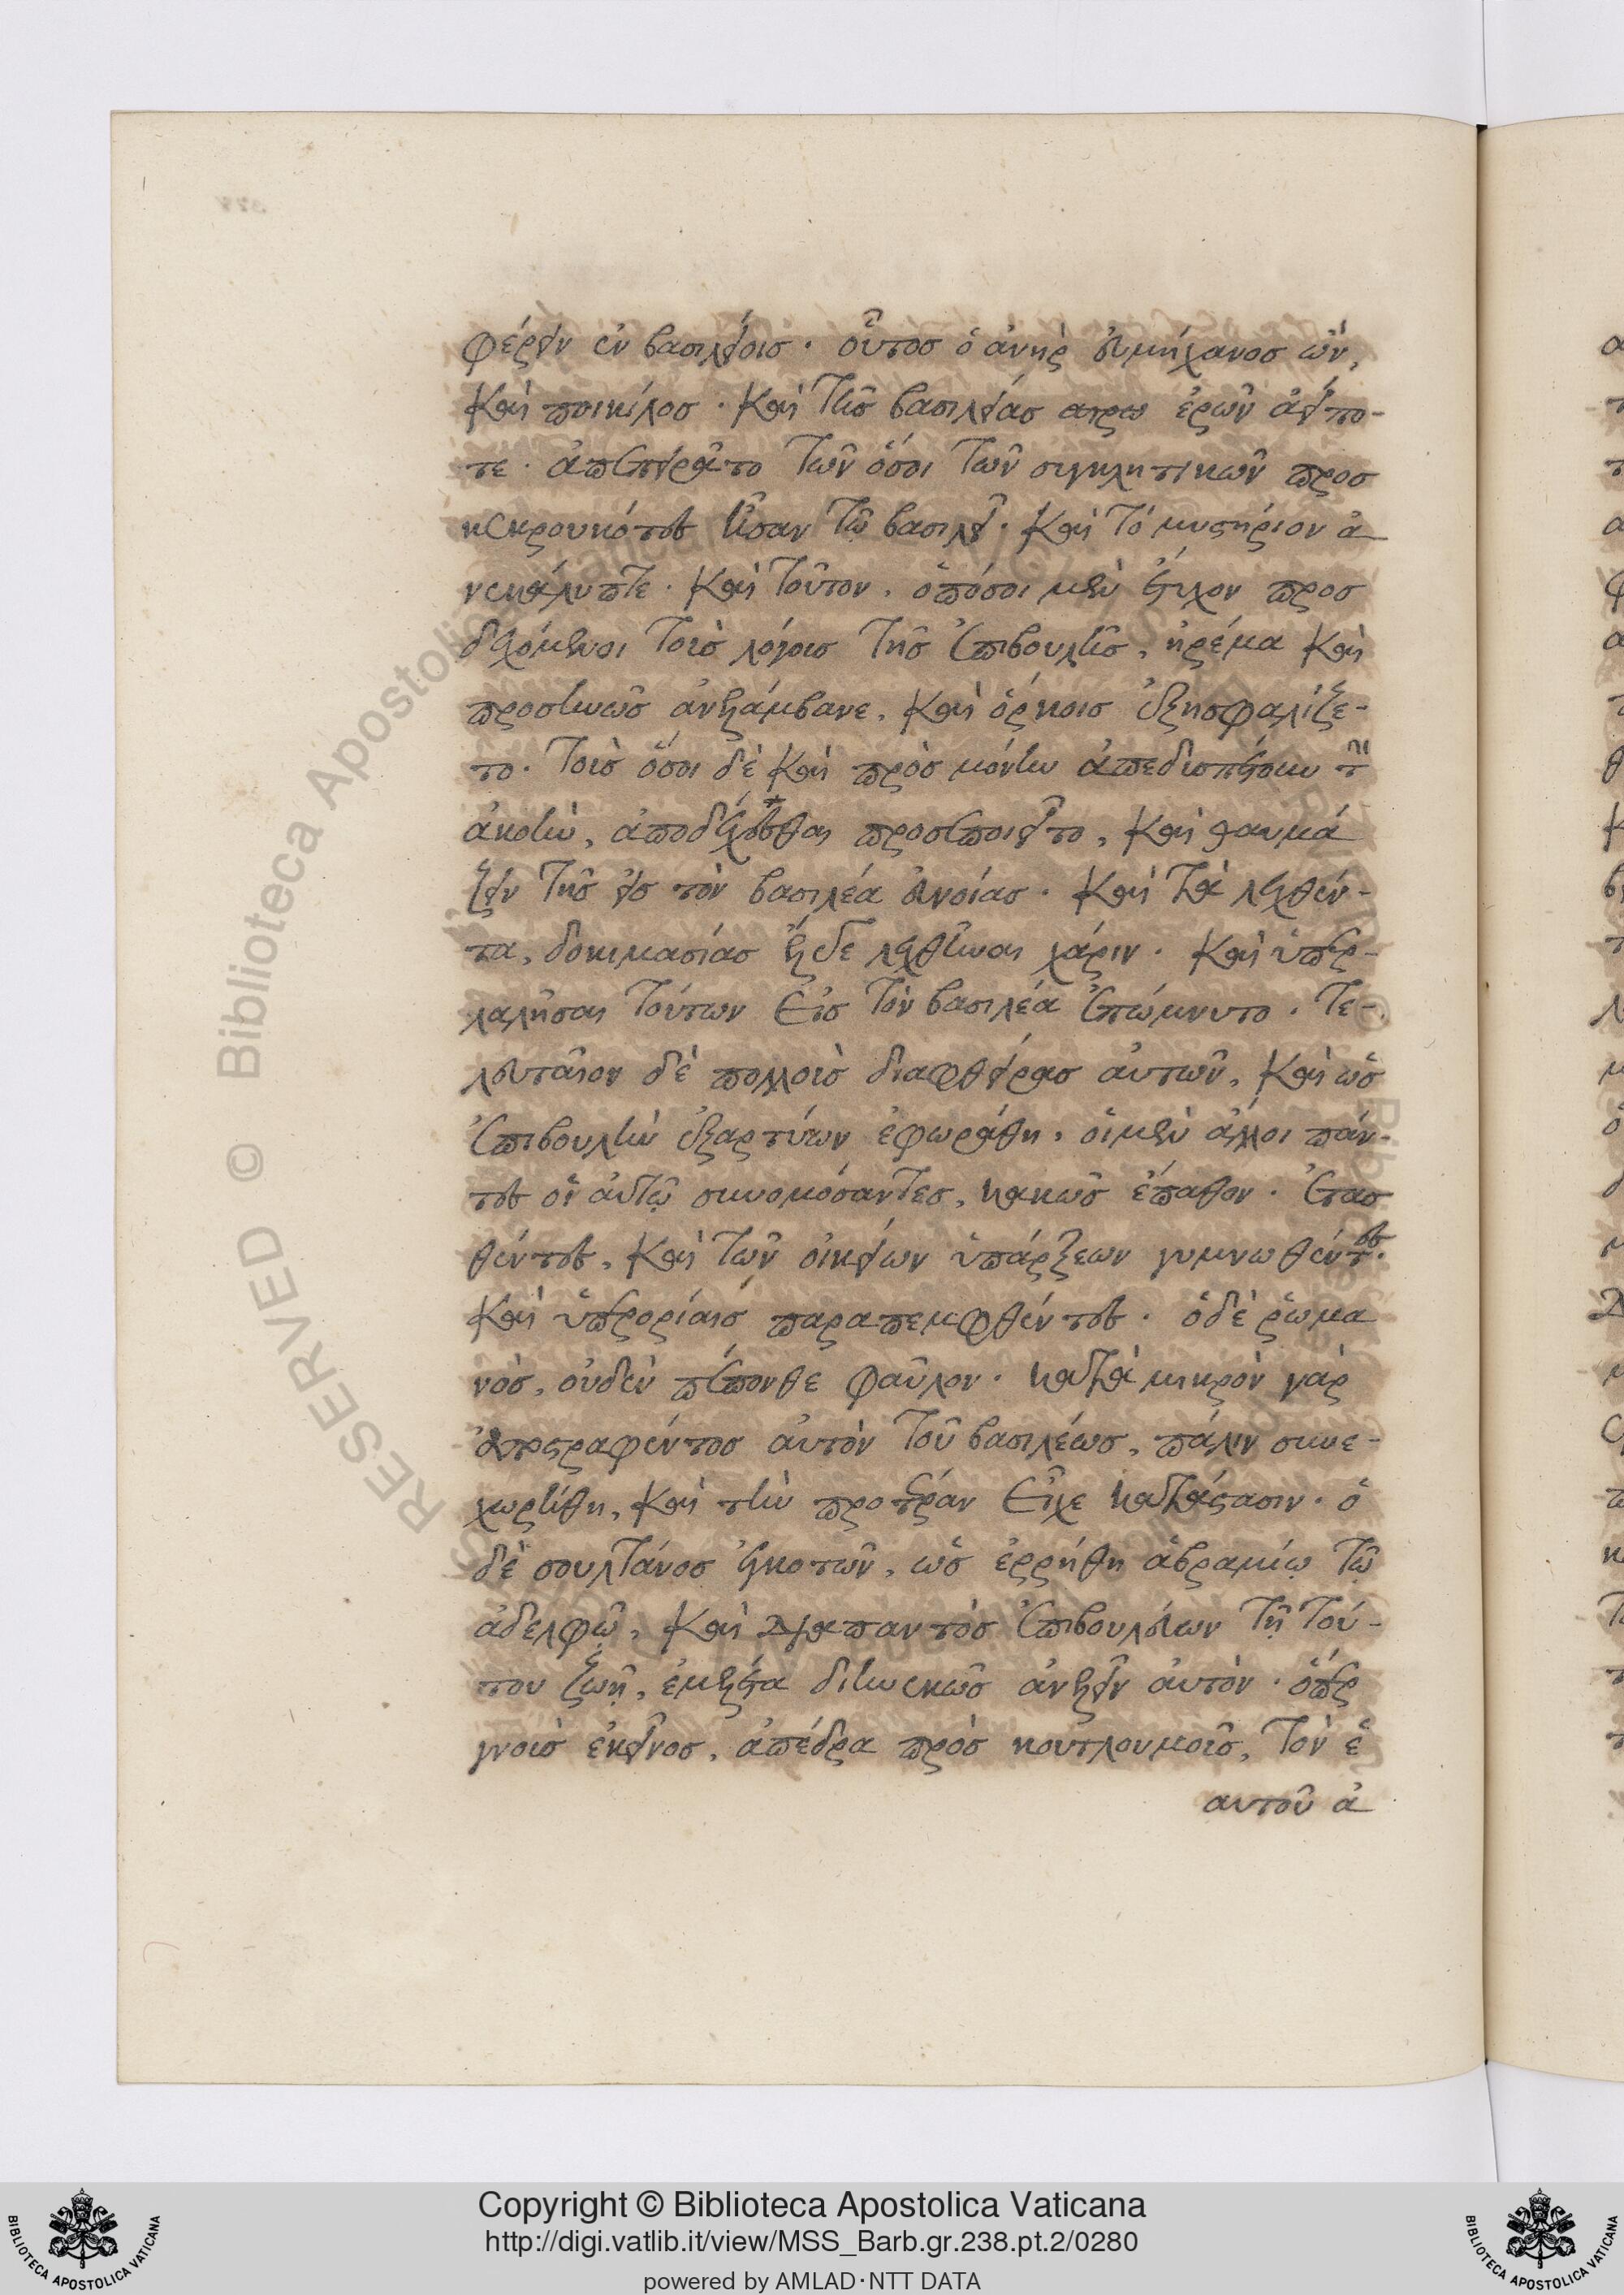 φέρειν ἐν βασιλείοις. οὗτος ὁ ἀνὴρ εὐμήχανος ὢν,
καὶ ποικίλος. καὶ τῆς βασιλείας ἐρῶν ἀείπο-
τε. ἀπεπειρᾶτο τῶν ὅσοι τῶν συγκλητικῶν προσ
κεκρουκότες ἦσαν τῷ βασιλεῖ. καὶ τὸ μυστήριον ἀ
νεκάλυπτε. καὶ τοῦτον. ὁπόσοι μὲν ἔτυχον προσ
δεχόμενοι τοὺς λόγους τῆς ἐπιβουλῆς, ἠρέμα καὶ
προσηνῶς ἀνελάμβανε, καὶ ὅρκοις ἐξησφαλίζε-
το. τοὺς ὅσοι δὲ καὶ πρὸς μόνην ἀπεδυσπέτουν τὴν
ἀκοὴν, ἀποδέχεσθαι προσεποιεῖτο, καὶ θαυμά
ζειν τῆς εἰς τὸν βασιλέα εὐνοίας. καὶ τὰ λεχθέν-
τα, δοκιμασίας ἔλεγε λεχθῆναι χάριν. καὶ ὑπερ-
λαλῆσαι τούτων εἰς τὸν βασιλέα ἐπώμνυτο. τε-
λευταῖον δὲ πολλοὺς διαφθείρας αὐτῶν, καὶ ὡς
ἐπιβουλὴν ἐξαρτύων ἐφωράθη, οἱ μὲν ἄλλοι πάν-
τες οἱ αὐτῷ συνομόσαντες, κακῶς ἔπαθον. ἐτασ
θέντες, καὶ τῶν οἰκείων ὑπάρξεων γυμνωθέντες.
καὶ ὑπερορίαις παραπεμφθέντες. ὁ δὲ ῥωμα
νὸς, οὐδὲν πέπονθε φαῦλον. κατὰ μικρὸν γὰρ
ἐπιστραφέντος αὐτὸν τοῦ βασιλέως, πάλιν συνε-
χωρήθη, καὶ τὴν προτέραν εἶχε κατάστασιν. ὁ
δὲ σουλτάνος ἐγκοτῶν, ὡς ἐρρήθη ἀβραμίῳ τῷ
ἀδελφῷ, καὶ διαπαντὸς ἐπιβουλεύων τῇ τού-
του ζωῇ, ἐμελέτα διηνεκῶς ἀνελεῖν αὐτὸν. ὅπερ
γνοὺς ἐκεῖνος, ἀπέδρα πρὸς κουτλουμοῦς, τὸν ἑ
αυτοῦ ἀ
Copyright © Biblioteca Apostolica Vaticana
http://digi.vatlib.it/view/MSS_Barb.gr.238.pt.2/0280
powered by AMLAD·NTT DATA